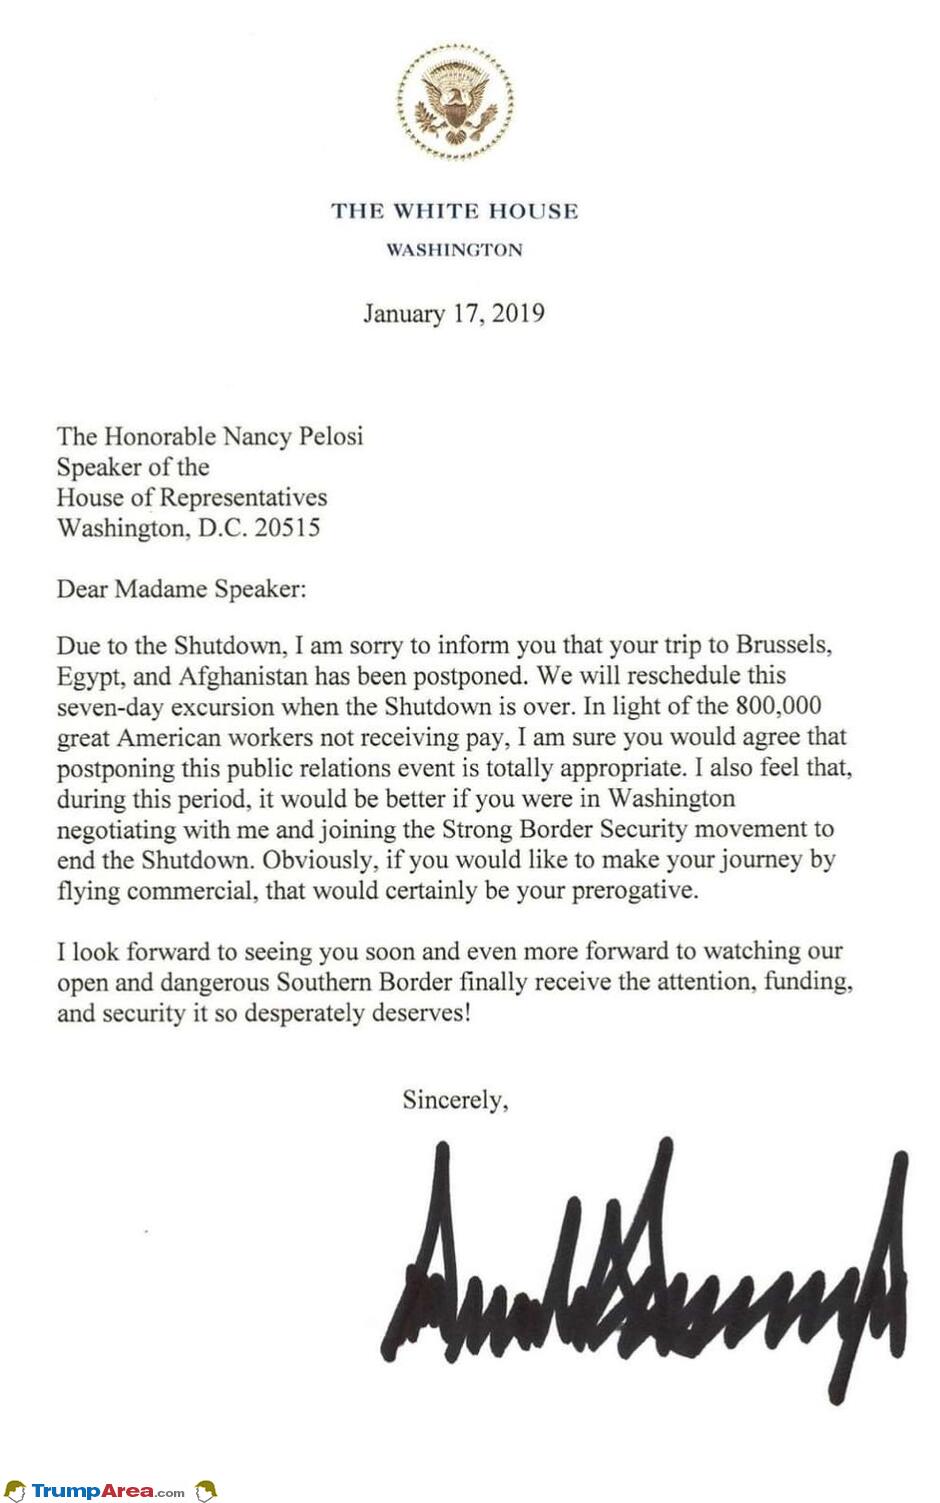 THE WHITE HOUSE
WASHINGTON
January 17, 2019
The Honorable Nancy Pelosi
Speaker of the
House of Representatives
Washington, D.C. 20515
Dear Madame Speaker:
Due to the Shutdown, I am sorry to inform you that your trip to Brussels,
Egypt, and Afghanistan has been postponed. We will reschedule this
seven-day excursion when the Shutdown is over. In light of the 800,000
great American workers not receiving pay, I am sure you would agree that
postponing this public relations event is totally appropriate. I also feel that,
during this period, it would be better if you were in Washington
negotiating with me and joining the Strong Border Security movement to
end the Shutdown. Obviously, if you would like to make your journey by
flying commercial, that would certainly be your prerogative.
I look forward to seeing you soon and even more forward to watching our
open and dangerous Southern Border finally receive the attention, funding,
and security it so desperately deserves!
Sincerely,
TrumpArea.com